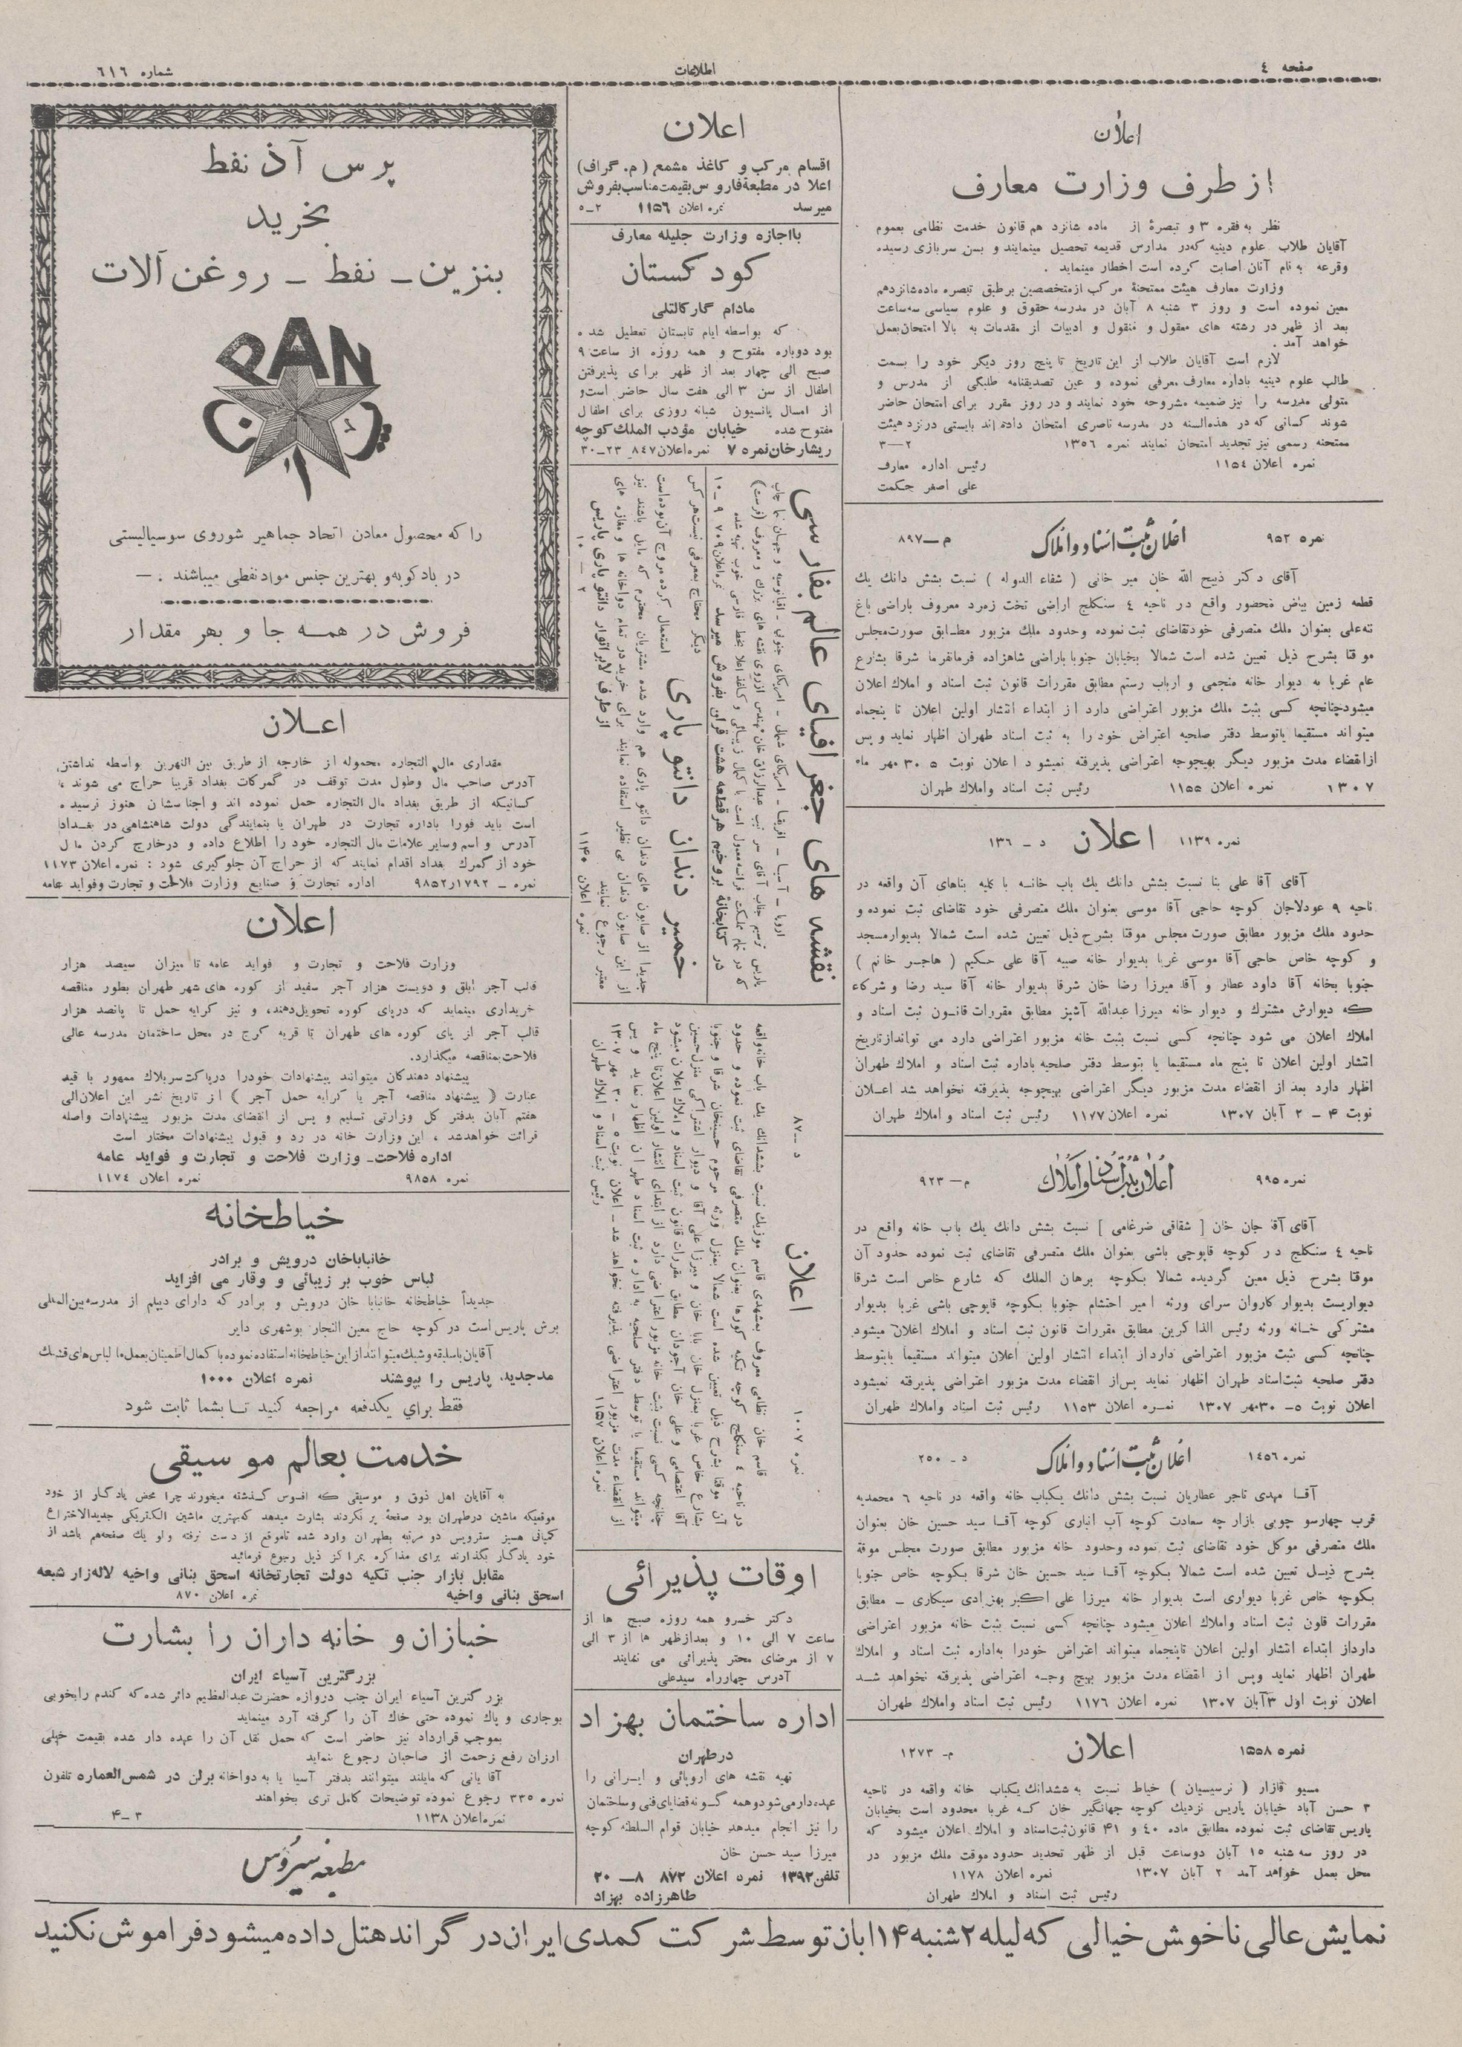 صفحه ٤
اطلاعات
شماره ٦١٦
اعلان
از طرف وزارت معارف
نظر به فقره ٣ و تبصرهٔ از ماده شانزد هم قانون خدمت نظامی بعموم
آقایان طلاب علوم دینیه که‌در مدارس قدیمه تحصیل مینمایند و بسن سربازی رسیده
وقرعه به نام آنان اصابت کرده است اخطار مینماید .
وزارت معارف هیئت ممتحنهٔ مرکب ازمتخصصین برطبق تبصره ماده‌شانزدهم
معین نموده است و روز ٣ شنبه ٨ آبان در مدرسه حقوق و علوم سیاسی سه‌ساعت
بعد از ظهر در رشته های معقول و منقول و ادبیات از مقدمات به بالا امتحان‌بعمل
خواهد آمد .
لازم است آقایان طلاب از این تاریخ تا پنج روز دیگر خود را بسمت
طالب علوم دینیه باداره معارف معرفی نموده و عین تصدیقنامه طلبگی از مدرس و
متولی مدرسه را نیز ضمیمه مشروحه خود نمایند و در روز مقرر برای امتحان حاضر
شوند کسانی که در هذه‌السنه در مدرسه ناصری امتحان داده‌اند بایستی درنزد هیئت
ممتحنه رسمی نیز تجدید امتحان نمایند نمره ١٣٥٦ ٢—٣
نمره اعلان ١١٥٤ رئیس اداره معارف
علی اصغر حکمت
نمره ٩٥٢ اعلان ثبت اسناد و املاک م—٨٩٧
آقای دکتر ذبیح الله خان میر خانی ( شفاء الدوله ) نسبت بشش دانك یك
قطعه زمین بیاض محصور واقع در ناحیه ٤ سنگلج اراضی تخت زمرد معروف باراضی باغ
ته‌علی بعنوان ملك متصرفی خودتقاضای ثبت نموده وحدود ملك مزبور مطابق صورت‌مجلس
موقتا بشرح ذیل تعیین شده است شمالا بخیابان جنوبا باراضی شاهزاده فرمانفرما شرقا بشارع
عام غربا به دیوار خانه منجمی و ارباب رستم مطابق مقررات قانون ثبت اسناد و املاك اعلان
میشودچنانچه کسی بثبت ملك مزبور اعتراضی دارد از ابتداء انتشار اولین اعلان تا پنجماه
میتواند مستقیما یاتوسط دفتر صلحیه اعتراض خود را به ثبت اسناد طهران اظهار نماید و پس
ازانقضاء مدت مزبور دیگر بهیچوجه اعتراضی پذیرفته نمیشود اعلان نوبت ٥ ٣٠ مهر ماه
١٣٠٧ نمره اعلان ١١٥٥ رئیس ثبت اسناد واملاك طهران
نمره ١١٣٩ اعلان د - ١٣٦
آقای آقا علی بنا نسبت بشش دانك یك باب خانه با کلیه بناهای آن واقعه در
ناحیه ٩ عودلاجان کوچه حاجی آقا موسی بعنوان ملك متصرفی خود تقاضای ثبت نموده و
حدود ملك مزبور مطابق صورت مجلس موقتا بشرح ذیل تعیین شده است شمالا بدیوارمسجد
و کوچه خاص حاجی آقا موسی غربا بدیوار خانه صبیه آقا علی حکیم ( هاجر خانم )
جنوبا بخانه آقا داود عطار و آقا میرزا رضا خان شرقا بدیوار خانه آقا سید رضا و شرکاء
که دیوارش مشترك و دیوار خانه میرزا عبدالله آشپز مطابق مقررات قانون ثبت اسناد و
املاك اعلان می شود چنانچه کسی نسبت بثبت خانه مزبور اعتراضی دارد می تواندازتاریخ
انتشار اولین اعلان تا پنج ماه مستقیما یا بتوسط دفتر صلحیه باداره ثبت اسناد و املاك طهران
اظهار دارد بعد از انقضاء مدت مزبور دیگر اعتراضی بهیچوجه پذیرفته نخواهد شد اعلان
نوبت ٤ - ٢ آبان ١٣٠٧ نمره اعلان ١١٧٧ رئیس ثبت اسناد و املاك طهران
نمره ٩٩٥ اعلان ثبت اسناد و املاک م- ٩٢٣
آقای آقا جان خان [ شقاقی ضرغامی ] نسبت بشش دانك یك باب خانه واقع در
ناحیه ٤ سنگلج در کوچه قاپوچی باشی بعنوان ملك متصرفی تقاضای ثبت نموده حدود آن
موقتا بشرح ذیل معین گردیده شمالا بکوچه برهان الملك که شارع خاص است شرقا
دیواریست بدیوار کاروان سرای ورثه امیر احتشام جنوبا بکوچه قاپوچی باشی غربا بدیوار
مشترکی خانه ورثه رئیس الذاکرین مطابق مقررات قانون ثبت اسناد و املاك اعلان میشود
چنانچه کسی ثبت مزبور اعتراضی دارداز ابتداء انتشار اولین اعلان میتواند مستقیما یابتوسط
دفتر صلحیه ثبت‌اسناد طهران اظهار نماید پس‌از انقضاء مدت مزبور اعتراضی پذیرفته نمیشود
اعلان نوبت ٥- ٣٠مهر ١٣٠٧ نمره اعلان ١١٥٣ رئیس ثبت اسناد واملاك طهران
نمره ١٤٥٦ اعلان ثبت اسناد و املاک د- ٢٥٠
آقا مهدی تاجر عطاریان نسبت بشش دانك یکباب خانه واقعه در ناحیه ٦ محمدیه
قرب چهارسو چوبی بازار چه سعادت کوچه آب انباری کوچه آقا سید حسین خان بعنوان
ملك متصرفی موکل خود تقاضای ثبت نموده وحدود خانه مزبور مطابق صورت مجلس موقة
بشرح ذیل تعیین شده است شمالا بکوچه آقا سید حسین خان شرقا بکوچه خاص جنوبا
بکوچه خاص غربا دیواری است بدیوار خانه میرزا علی اکبر بهزادی سیگاری - مطابق
مقررات قانون ثبت اسناد واملاك اعلان میشود چنانچه کسی نسبت بثبت خانه مزبور اعتراضی
دارداز ابتداء انتشار اولین اعلان تاپنجماه میتواند اعتراض خودرا به‌اداره ثبت اسناد و املاك
طهران اظهار نماید وپس از انقضاء مدت مزبور بهیچ وجه اعتراضی پذیرفته نخواهد شد
اعلان نوبت اول ٣آبان ١٣٠٧ نمره اعلان ١١٧٦ رئیس ثبت اسناد واملاك طهران
نمره ١٥٥٨ اعلان م- ١٢٧٣
مسیو قازار ( نرسیسیان ) خیاط نسبت به ششدانك یکباب خانه واقعه در ناحیه
٣ حسن آباد خیابان پاریس نزدیك کوچه جهانگیر خان که غربا محدود است بخیابان
پاریس تقاضای ثبت نموده مطابق ماده ٤٠ و ٤١ قانون‌ثبت‌اسناد و املاك اعلان میشود که
در روز سه شنبه ١٥ آبان دوساعت قبل از ظهر تحدید حدود‌موقت ملك مزبور در
محل بعمل خواهد آمد ٢ آبان ١٣٠٧ نمره اعلان ١١٧٨
رئیس ثبت اسناد و املاك طهران
اعلان
اقسام مرکب و کاغذ مشمع ( م. گراف)
اعلا در مطبعهٔ فاروس بقیمت‌مناسب‌بفروش
میرسد نمره اعلان ١١٥٦ ٢-٥
بااجازه وزارت جلیله معارف
کودکستان
مادام گارکالتلی
که بواسطه ایام تابستان تعطیل شده
بود دوباره مفتوح و همه روزه از ساعت ٩
صبح الی چهار بعد از ظهر برای پذیرفتن
اطفال از سن ٣ الی هفت سال حاضر است‌و
از امسال پانسیون شبانه روزی برای اطفال
مفتوح شده خیابان مؤدب الملك‌کوچه
ریشارخان‌نمره ٧ نمره‌اعلان ٨٤٧ ٢٣-٣٠
نقشه های جغرافیای عالم بفارسی
اروپا - آسیا - افریقا - امریکای شمالی - امریکای جنوبی - اقیانوسیه و جهان نما چاپ
پاریس ترسیم جناب آقای سرتیپ عبدالرزاق خان مهندس از روی نقشه های بزرك و معروف (فرست)
که در تمام مملکت فرانسه معمول است با کمال زیبائی و کاغذ اعلا بخط فارسی خوب تهیه شده
در کتابخانهٔ بروخیم هر قطعه هشت قران بفروش میرسد نمره‌اعلان ٧٠٩ ٩-١٠
خمیر دندان دانتو پاری
دیگر محتاج بمعرفی نیست‌هر کس
استعمال کرده مروج آن‌بوده‌است
جدیدا از صابون های دندان دانتو پاری هم وارد شده مشتریان محترم که مایل باشند نیز
از این صابون دندان بی نظیر استفاده نمایند برای خرید در تمام دواخانه ها و مغازه های
معتبر رجوع نمایند از طرف لابراتوار دانتو پاری پاریس
نمره اعلان ١١٤٠ ٢-١٠
نمره ١٠٠٧ اعلان د -٨٧
قاسم خان نظامی معروف بمشهدی قاسم موزیك نسبت بششدانك یك باب خانه‌واقعه
در ناحیه ٤ سنگلج کوچه تکیه کورها بعنوان ملك متصرفی تقاضای ثبت نموده و حدود
آن موقتا بشرح ذیل تعیین شده است شمالا بمنزل ورثه مرحوم حسینخان شرقا و جنوبا
بشارع خاص غربا بمنزل خان بابا خان و میرزا علی آقا و دیوار اشتراکی منزل‌حسین
آقا اعتصامی و علی خان آجودان مطابق مقررات قانون ثبت اسناد و املاك اعلان میشود
چنانچه کسی نسبت بثبت خانه مزبور اعتراضی دارد از ابتدای انتشار اولین اعلان‌تا پنج ماه
میتواند مستقیما یا توسط دفتر صلحیه به اداره ثبت اسناد طهران اظهار نماید و پس
از انقضاء مدت مزبور اعتراضی پذیرفته نخواهد شد - اعلان نوبت ٥ - ٣٠ مهر ١٣٠٧
نمره اعلان ١١٥٧ رئیس ثبت اسناد و املاك طهران
اوقات پذیرائی
دکتر خسرو همه روزه صبح ها از
ساعت ٧ الی ١٠ و بعدازظهر ها از ٣ الی
٧ از مرضای محتر پذیرائی می نمایند
آدرس چهارراه سیدعلی
اداره ساختمان بهزاد
درطهران
تهیه نقشه های اروپائی و ایرانی را
عهده‌دارمی‌شودوهمه گونه‌قضایای‌فنی وساختمان
را نیز انجام میدهد خیابان قوام السلطنه کوچه
میرزا سید حسن خان
تلفن ١٣٩٢ نمره اعلان ٨٧٢ ٨—٢٠
طاهرزاده بهزاد
پرس آذ نفط
بخرید
بنزین - نفط - روغن آلات
PAN
پرس
آ
ن
را که محصول معادن اتحاد جماهیر شوروی سوسیالیستی
در بادکوبه‌و بهترین جنس مواد نفطی میباشند . —
فروش در همه جا و بهر مقدار
اعلان
مقداری مال التجاره محموله از خارجه از طریق بین النهرین بواسطه نداشتن
آدرس صاحب مال وطول مدت توقف در گمرکات بغداد قریبا حراج می شوند ،
کسانیکه از طریق بغداد مال التجاره حمل نموده اند و اجناسشان هنوز نرسیده
است باید فورا باداره تجارت در طهران یا بنمایندگی دولت شاهنشاهی در بغداد
آدرس و اسم وسایر علامات مال التجاره خود را اطلاع داده و درخارج کردن مال
خود ازگمرك بغداد اقدام نمایند که از حراج آن جلوگیری شود : نمره‌اعلان ١١٧٣
نمره - ٩٨٥٢ر١٧٩٢ اداره تجارت و صنایع وزارت فلاحت و تجارت وفواید عامه
اعلان
وزارت فلاحت و تجارت و فواید عامه تا میزان سیصد هزار
قالب آجر ابلق و دویست هزار آجر سفید از کوره های شهر طهران بطور مناقصه
خریداری مینماید که درپای کوره تحویل‌دهند، و نیز کرایه حمل تا پانصد هزار
قالب آجر از پای کوره های طهران تا قریه کرج در محل ساختمان مدرسه عالی
فلاحت بمناقصه میگذارد.
پیشنهاد دهندگان میتوانند پیشنهادات خودرا درپاکت سربلاك ممهور با قید
عبارت ( پیشنهاد مناقصه آجر یا کرایه حمل آجر ) از تاریخ نشر این اعلان‌الی
هفتم آبان بدفتر کل وزارتی تسلیم و پس از انقضای مدت مزبور پیشنهادات واصله
قرائت خواهدشد ، این وزارت خانه در رد و قبول پیشنهادات مختار است
اداره فلاحت- وزارت فلاحت و تجارت و فواید عامه
نمره ٩٨٥٨ نمره اعلان ١١٧٤
خیاطخانه
خانباباخان درویش و برادر
لباس خوب بر زیبائی و وقار می افزاید
جدیداً خیاطخانه خانبابا خان درویش و برادر که دارای دیپلم از مدرسه‌بین‌المللی
برش پاریس است درکوچه حاج معین التجار بوشهری دایر
آقایان باسلیقه وشیك میتوانند‌از این‌خیاطخانه‌استفاده نموده باکمال اطمینان بعمل‌ها لباس‌های قشنك
مدجدید پاریس را بپوشند نمره اعلان ١٠٠٠
فقط برای یکدفعه مراجعه کنید تا بشما ثابت شود
خدمت بعالم موسیقی
به آقایان اهل ذوق و موسیقی که افسوس گذشته میخورند چرا محض یادگار از خود
موقعیکه ماشین درطهران بود صفحه پر نکردند بشارت میدهد که‌بهترین ماشین الکتریکی جدیدالاختراع
کمپانی هسیز سترویس دو مرتبه بطهران وارد شده تاموقع از دست نرفته ولو یك صفحه‌هم باشد از
خود یادگار بگذارند برای مذاکره بمراکز ذیل رجوع فرمائید
مقابل بازار جنب تکیه دولت تجارتخانه اسحق بنانی واخیه لاله‌زار شعبه
اسحق بنانی واخیه نمره اعلان ٨٧٠
خبازان و خانه داران را بشارت
بزرگترین آسیاء ایران
بزرگترین آسیاء ایران جنب دروازه حضرت عبدالعظیم دائر شده که گندم رابخوبی
بوجاری و پاك نموده حتی خاك آن را گرفته آرد مینماید
بموجب قرارداد نیز حاضر است که حمل نقل آن را عهده دار شده بقیمت خیلی
ارزان رفع زحمت از صاحبان رجوع بنماید
آقایانی که مایلند میتوانند بدفتر آسیا یا به دواخانه برلن در شمس‌العماره تلفون
نمره ٣٣٥ رجوع نموده توضیحات کامل تری بخواهند
نمره‌اعلان ١١٣٨ ٣-٤
مطبعه سیروس
نمایش عالی ناخوش خیالی که لیله ٢شنبه ١٤ابان توسط شرکت کمدی ایران در گراند هتل داده میشود فراموش نکنید